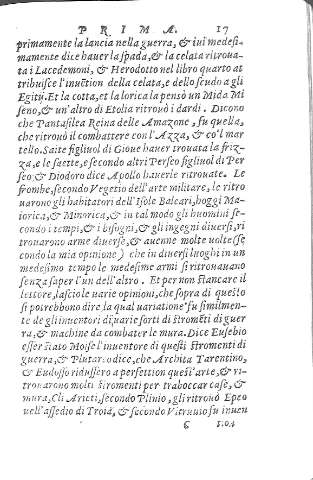 PRIMA. 17
primamente la lancia nella guerra, & iui medesi-
mamente dice hauer la spada, & la celata ritroua-
ta i Lacedemoni, & Herodotto nel libro quarto at
tribuisce l'inuētion della celata, e dello scudo a gli
Egitij. Et la cotta, et la lorica la pensò un Mida Mi
seno, & un'altro di Etolia ritrouò i dardi. Dicono
che Pantasilea Reina delle Amazone, fu quella,
che ritrouò il combattere con l'Azza, & co'l mar
tello. Saite figliuol di Gioue hauer trouata la friz-
za, e le saette, e secondo altri Perseo figliuol di Per
seo, & Diodoro dice Apollo hauerle ritrouate. Le
frombe, secondo Vegetio dell'arte militare, le ritro
uarono gli habitatori dell'Isole Baleari, hoggi Ma-
iorica, & Minorica, & in tal modo gli huomini se-
condo i tempi, & i bisogni, & gli ingegni diuersi, ri
trouarono arme diuerse, & auenne molte uolte (se
condo la mia opinione) che in diuersi luoghi in un
medesimo tempo le medesime armi si ritrouauano
senza saper l'un dell'altro. Et per non stancare il
lettore, lasciole varie opinioni, che sopra di questo
si potrebbono dire la qual uariatione fu similmen-
te de gli inuentori di uarie sorti di stromēti di guer
ra, & machine da combater le mura. Dice Eusebio
esser stato Moise l'inuentore di questi stromenti di
guerra, & Plutarco dice, che Archita Tarentino,
& Eudosso ridussero a perfettion quest'arte, & ri-
trouarono molti stromenti per traboccar case, &
mura, Gli Arieti, secondo Plinio, gli ritrouò Epeo
nell'assedio di Troia, & secondo Vitruuio fu inuen
C